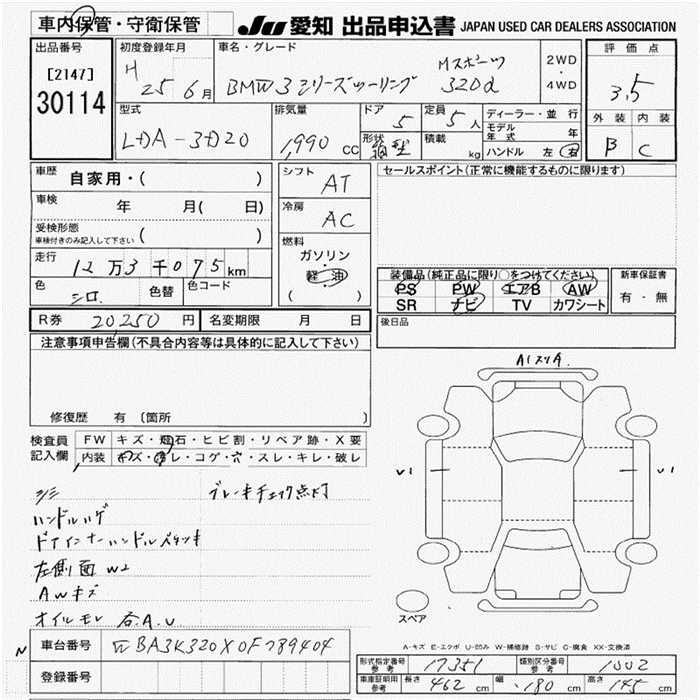 車内保管・守衛保管
JU 愛知 出品申込書 JAPAN USED CAR DEALERS ASSOCIATION
出品番号
[2147]
30114
初度登録年月
H 25 6月
車名・グレード
BMW3シリーズツーリング Mスポーツ 320d
2WD
・
4WD
評価点
3.5
外装 内装
B C
型式
LDA-3D20
排気量
1,990 cc
ドア 5
定員 5人
形状
積載 kg
ディーラー・並行
モデル年式 年
ハンドル 左 右
車歴 自家用・( )
車検 年 月( 日)
受検形態
車検付きのみ記入して下さい ( )
走行 12万3千075km
色 シロ 色替 色コード
シフト AT
冷房 AC
燃料
ガソリン
軽油
( )
セールスポイント(正常に機能するものに限ります)
装備品(純正品に限り○をつけてください)
PS PW エアB AW
SR ナビ TV カワシート
新車保証書
有・無
後日品
R券 20,250円 名変期限 月 日
注意事項申告欄(不具合内容等は具体的に記入して下さい)
修復歴 有 〔箇所 〕
検査員記入欄
FW キズ・飛石・ヒビ割・リペア跡・X要
内装 キズ・汚レ・コゲ・穴・スレ・キレ・破レ
ブレーキチェック点灯
ハンドルハゲ
ドアインナーハンドルベタツキ
左側面W2
AWキズ
オイルモレ
A1スリA
U1
U1
スペア
A-キズ E-エクボ U-凹み W-補修跡 S-サビ C-腐食 XX-交換済
N
車台番号 WBA3K320X0F789404
登録番号
形式指定番号 参考 17351
類別区分番号 参考 1002
車庫証明用 参考 長さ 462 cm 幅 180 cm 高さ 145 cm